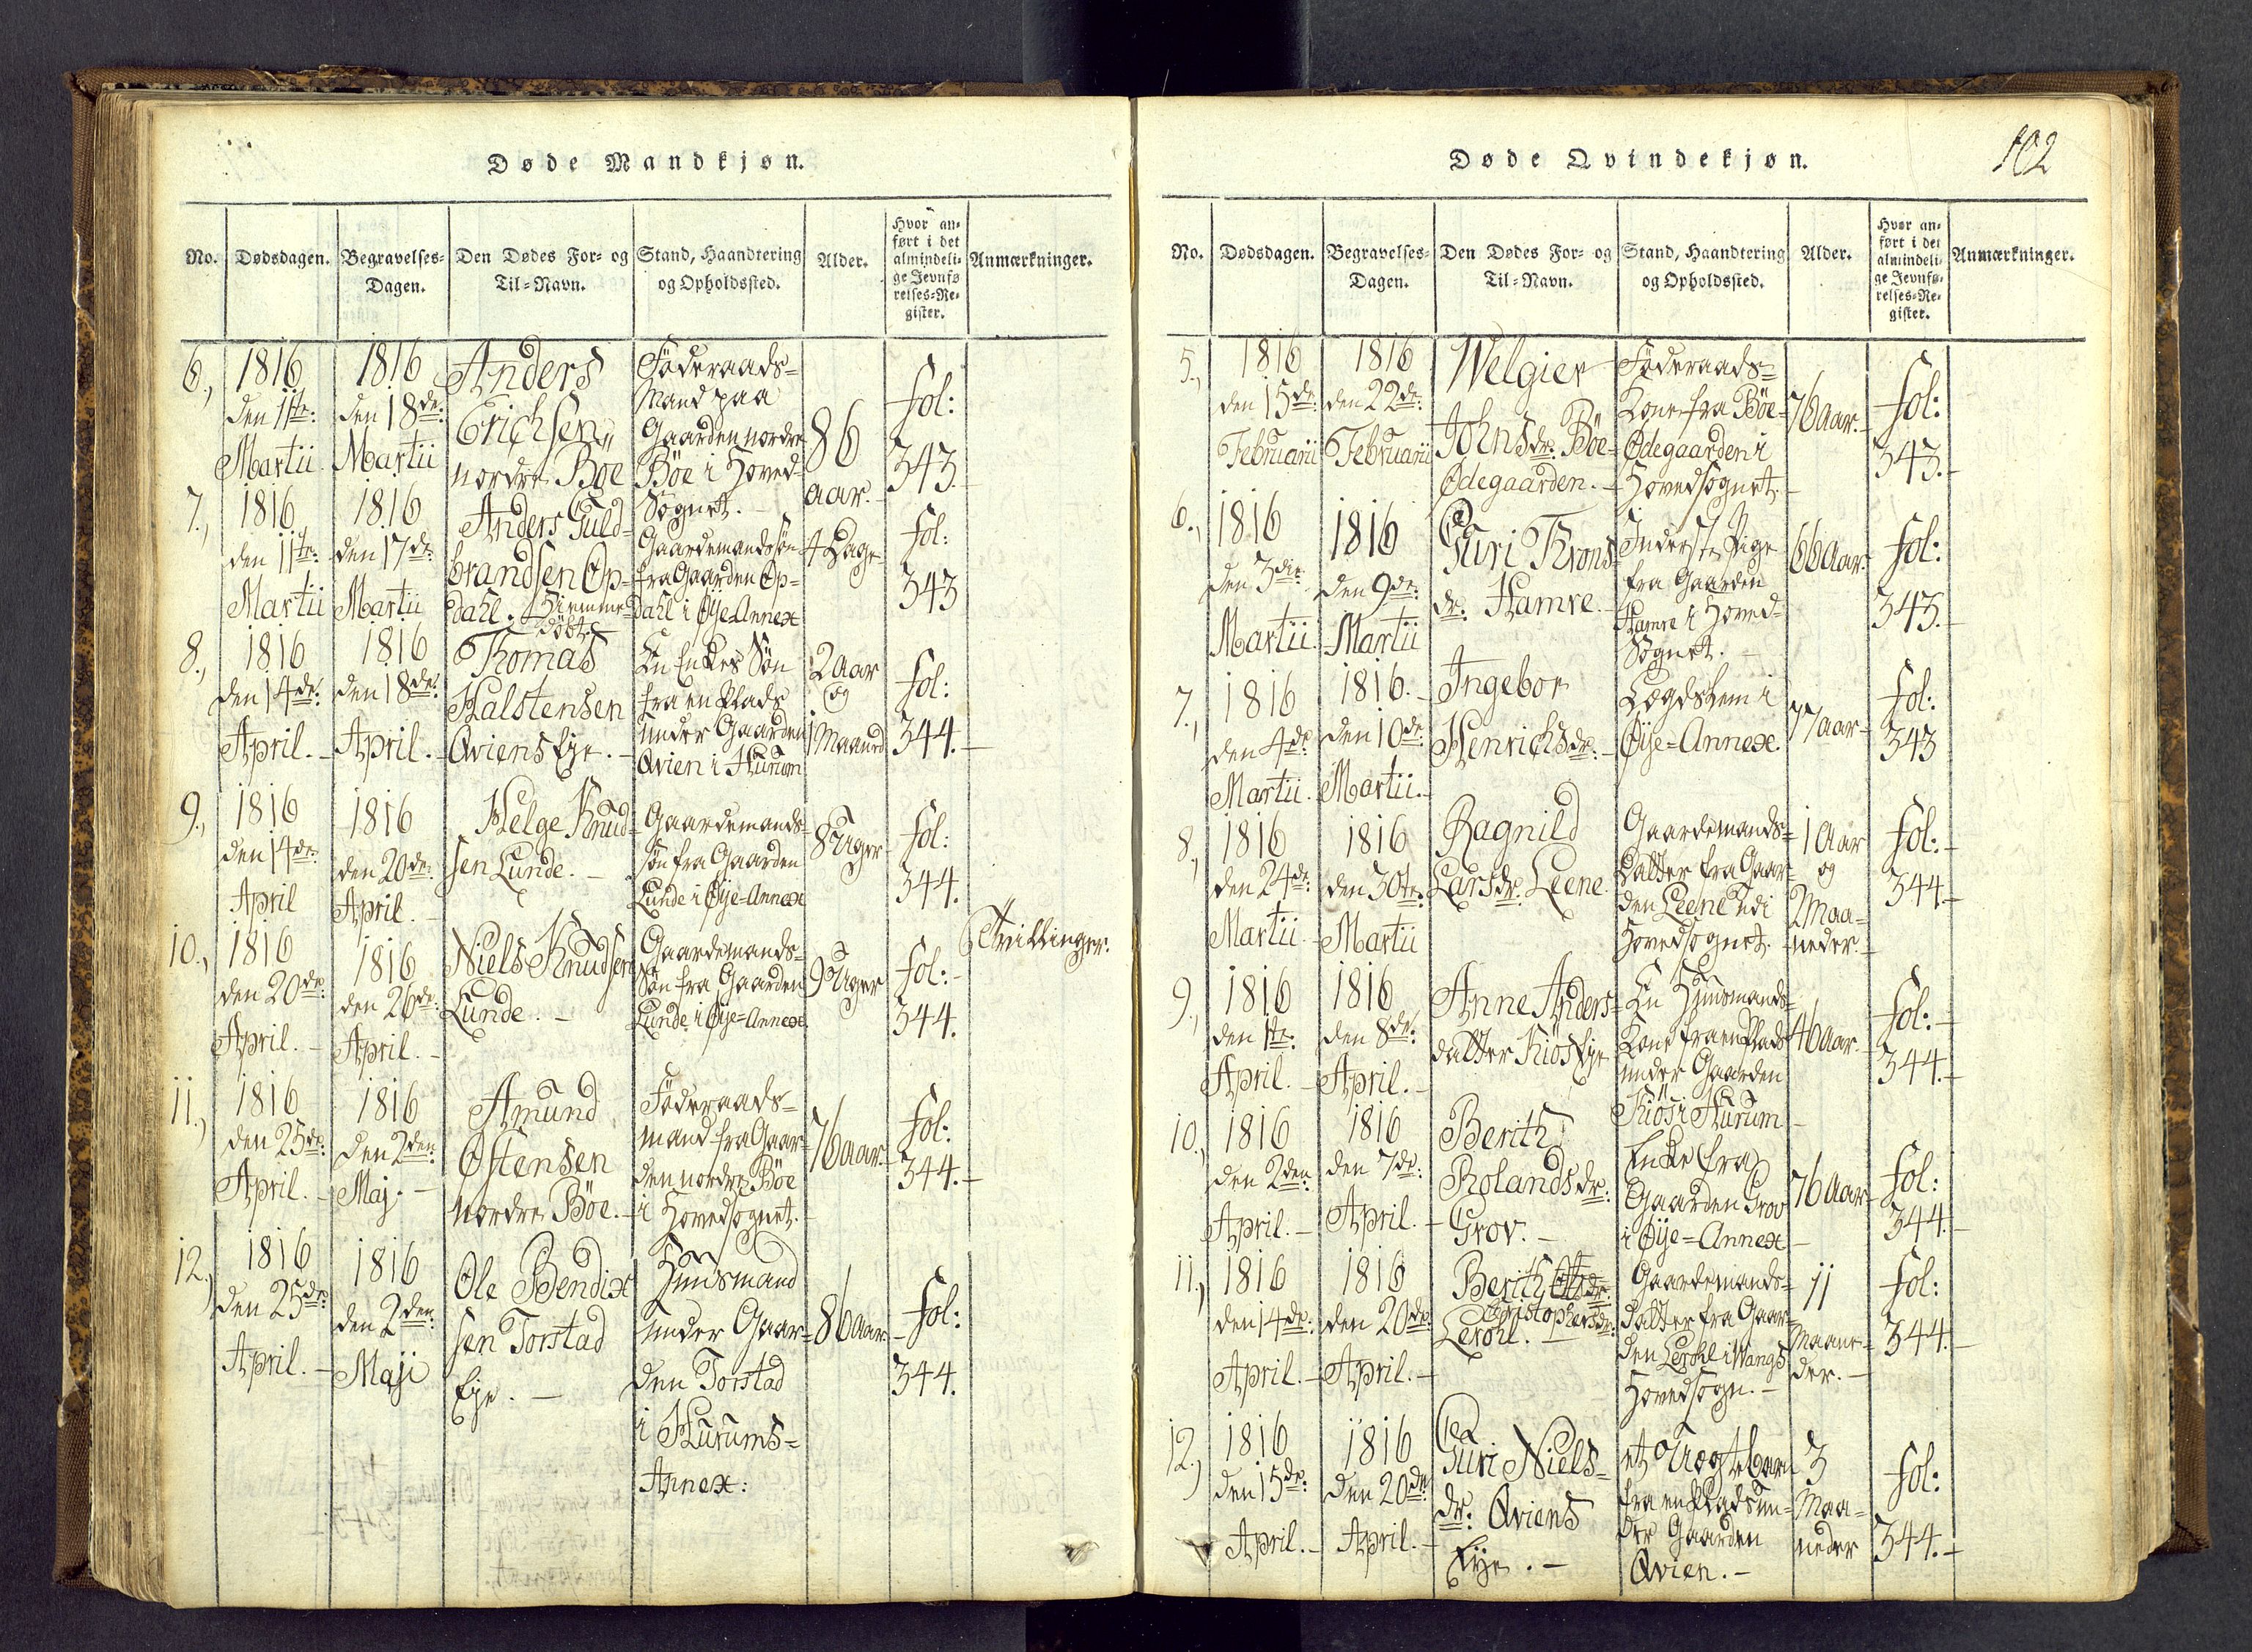 Døde Mandkjøn.
No.
Dødsdagen.
Begravelses-
Dagen.
Den Dødes For- og
Til-Navn.
Stand, Haandtering
og Opholdssted.
Alder.
Hvor an-
ført i det
almindeli-
ge Jevnfø
relses-Re-
gister.
Anmærkninger.
6.,
1816
den 11te:
Martii
1816
den 18de:
Martii
Anders
Erichsen
nordre Bøe
Føderaads-
Mand paa
Gaarden nordre
Bøe i Hoved-
Sognet.
86
aar.
fol:
343.
7.,
1816
den 11te:
Martii
1816
den 17de:
Martii
Anders Guld-
brandsen Op-
dahl. Hiemme-
døbt.
Gaardemandssøn
fra Gaarden Op-
dahl i Øye-Annex
4 Dage
fol:
343
8.,
1816
den 14de:
April.
1816
den 18de:
April.
Thomas
Halstensen
Qviens Eje.
En Enkes Søn
fra en Plads
under Gaarden
Qvien i Hurum
2 Aar
og
1 Maaned
fol:
344.
9.,
1816
den 14de:
April
1816
den 20de:
April.
Helge Knud-
sen Lunde.
Gaardemands-
søn fra Gaarden
Lunde i Øye-Annex
8 Uger
fol:
344.
Tvillinger.
10.,
1816
den 20de:
April.
1816
den 26de:
April.
Niels Knudsen
Lunde.
Gaardemands-
Søn fra Gaarden
Lunde i Øye-Annex
9 Uger
fol:
344.
11.,
1816
den 25de:
April.
1816
den 2den:
Maj.
Amund
Østensen
nordre Bøe.
Føderaads-
mand fra Gaar-
den nordre Bøe
i Hovedsognet.
76 aar.
fol:
344.
12.,
1816
den 25de:
April.
1816
den 2den:
Maji
Ole Bendix
sen Torstad
Eje.
Huusmand
under Gaar-
den Torstad
i Hurums-
Annex:
86 aar.
fol:
344.
Døde Qvindekjøn.
102
No.
Dødsdagen.
Begravelses-
Dagen.
Den Dødes For- og
Til-Navn.
Stand, Haandtering
og Opholdssted.
Alder.
Hvor an-
ført i det
almindeli-
ge Jevnfø-
relses-Re-
gister.
Anmærkninger.
5.,
1816
den 15de:
Februarii
1816
den 22de:
Februarii
Welgier
Johnsdr: Bøe-
Ødegaarden.
Føderaads-
Kone fra Bøe-
Ødegaarden i
Hovedsognet.
76 aar.
fol:
343.
6.,
1816
den 3die:
Martii.
1816
den 9de:
Martii
Guri Throns
dr: Hamre.
Inderste Pige
fra Gaarden
Hamre i Hoved-
Sognet.
66 aar.
fol:
343.
7.,
1816
den 4de:
Martii.
1816.
den 10de:
Martii.
Ingebor
Henrichsdr:
Lægdslem i
Øye-Annex.
77 aar
fol:
343
8.,
1816
den 24de:
Martii.
1816
den 30te:
Martii
Ragnild
Larsdr: Leene.
Gaardemands-
Datter fra Gaar-
den Leene i
Hovedsognet.
1 Aar
og
2 Maa-
neder.
fol:
344.
9.,
1816
den 1te:
April.
1816
den 8de:
April.
Anne Anders-
datter Kiös Eje
En Huusmands-
Kone fra en Plads
under Gaarden
Kiös i Hurum
46 aar.
fol:
344.
10.,
1816
den 2den:
April.
1816
den 7de:
April.
Berith
Rolandsdr:
Grov.
Enke fra
Gaarden Grov
i Øye-Annex
76 Aar
fol:
344.
11.,
1816
den 14de:
April.
1816
den 20de:
April.
Berith
Christophersdr:
Lerohl.
Gaardemands-
datter fra Gaar-
den Lerohl i Wangs
Hovedsogn.
11
Maane-
der.
fol:
344.
12.,
1816
den 15de:
April.
1816
den 20de:
April.
Guri Niels-
dr: Qviens
Eije.
et Uægte barn
fra en Plads un-
der Gaarden
Qvien.
3
Maa-
neder
fol:
344.